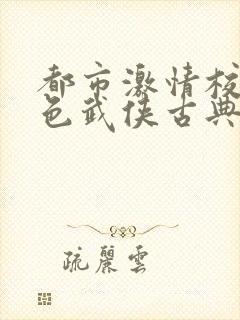 都市激情校
色武侠古典
疏麗雲